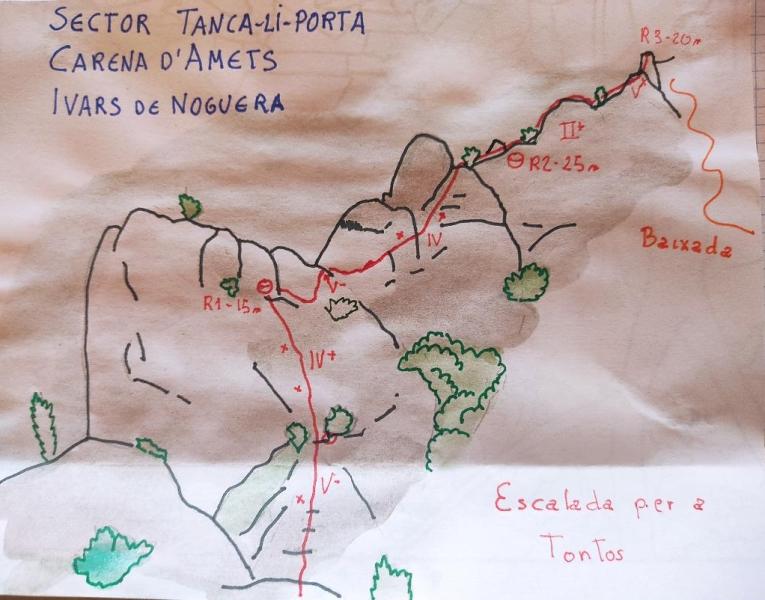 SECTOR TANCA-Li-PORTA
CARENA D'AMETS
IVARS DE NOGUERA
R3-20m
II+
R2-25m
IV
Baixada
V-
R1-15m
IV+
V-
Escalada per a
Tontos